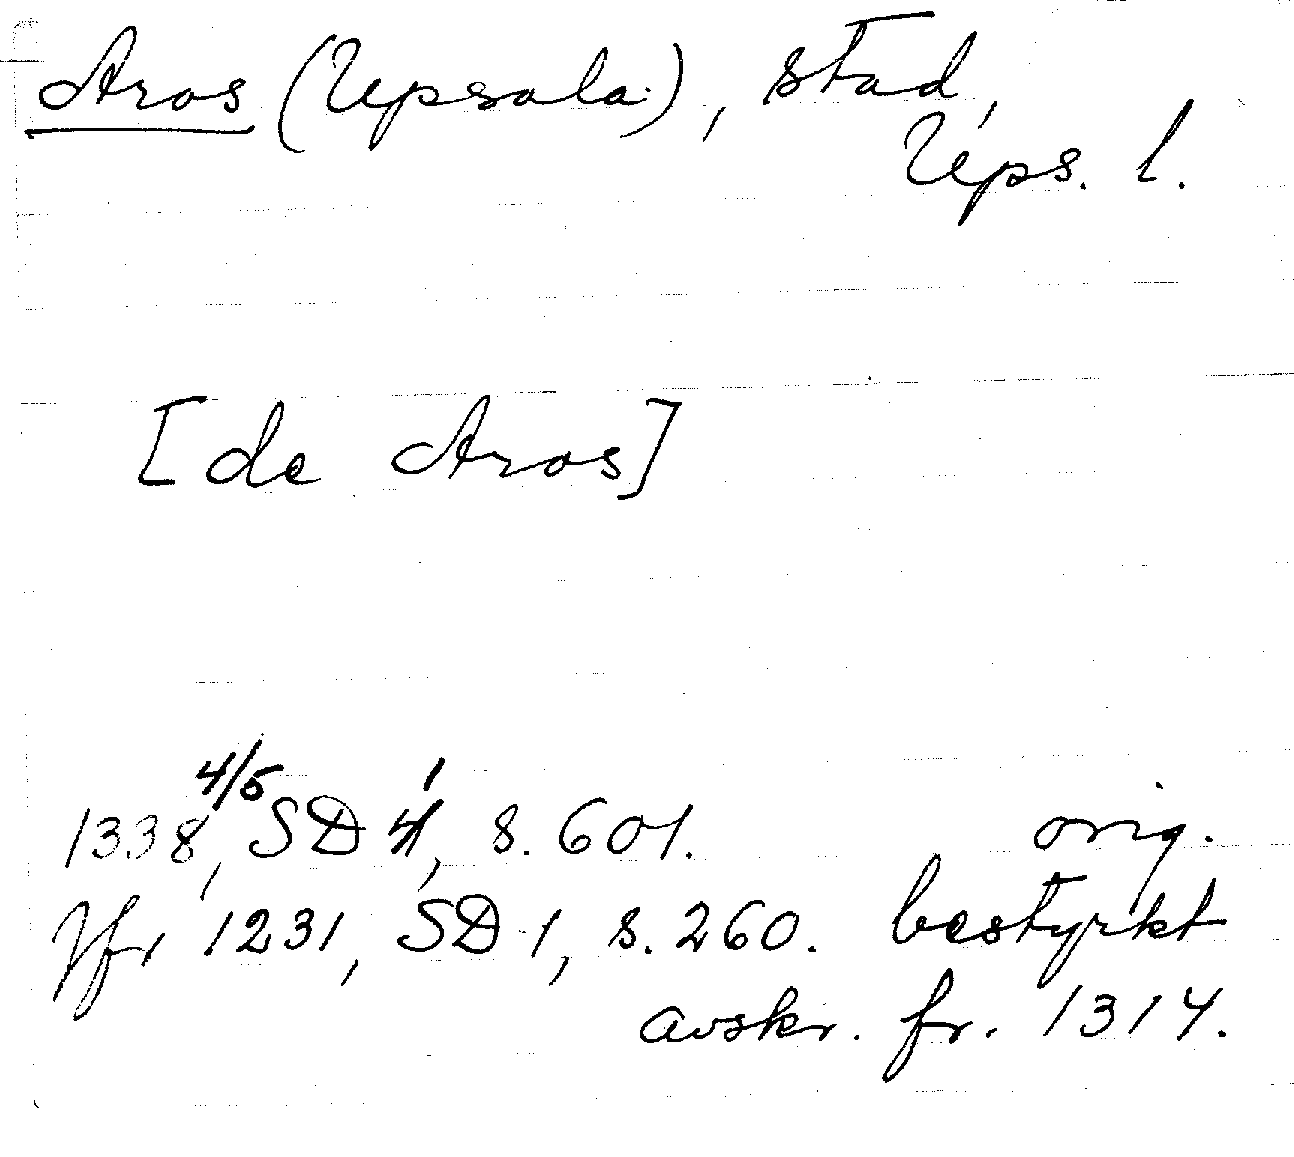 Aros (Upsala), stad,
Ups. l.
[de Aros]
1338 4/5, SD 4, s. 601. orig.
Jfr 1231, SD 1, s. 260. bestyrkt
avskr. fr. 1314.